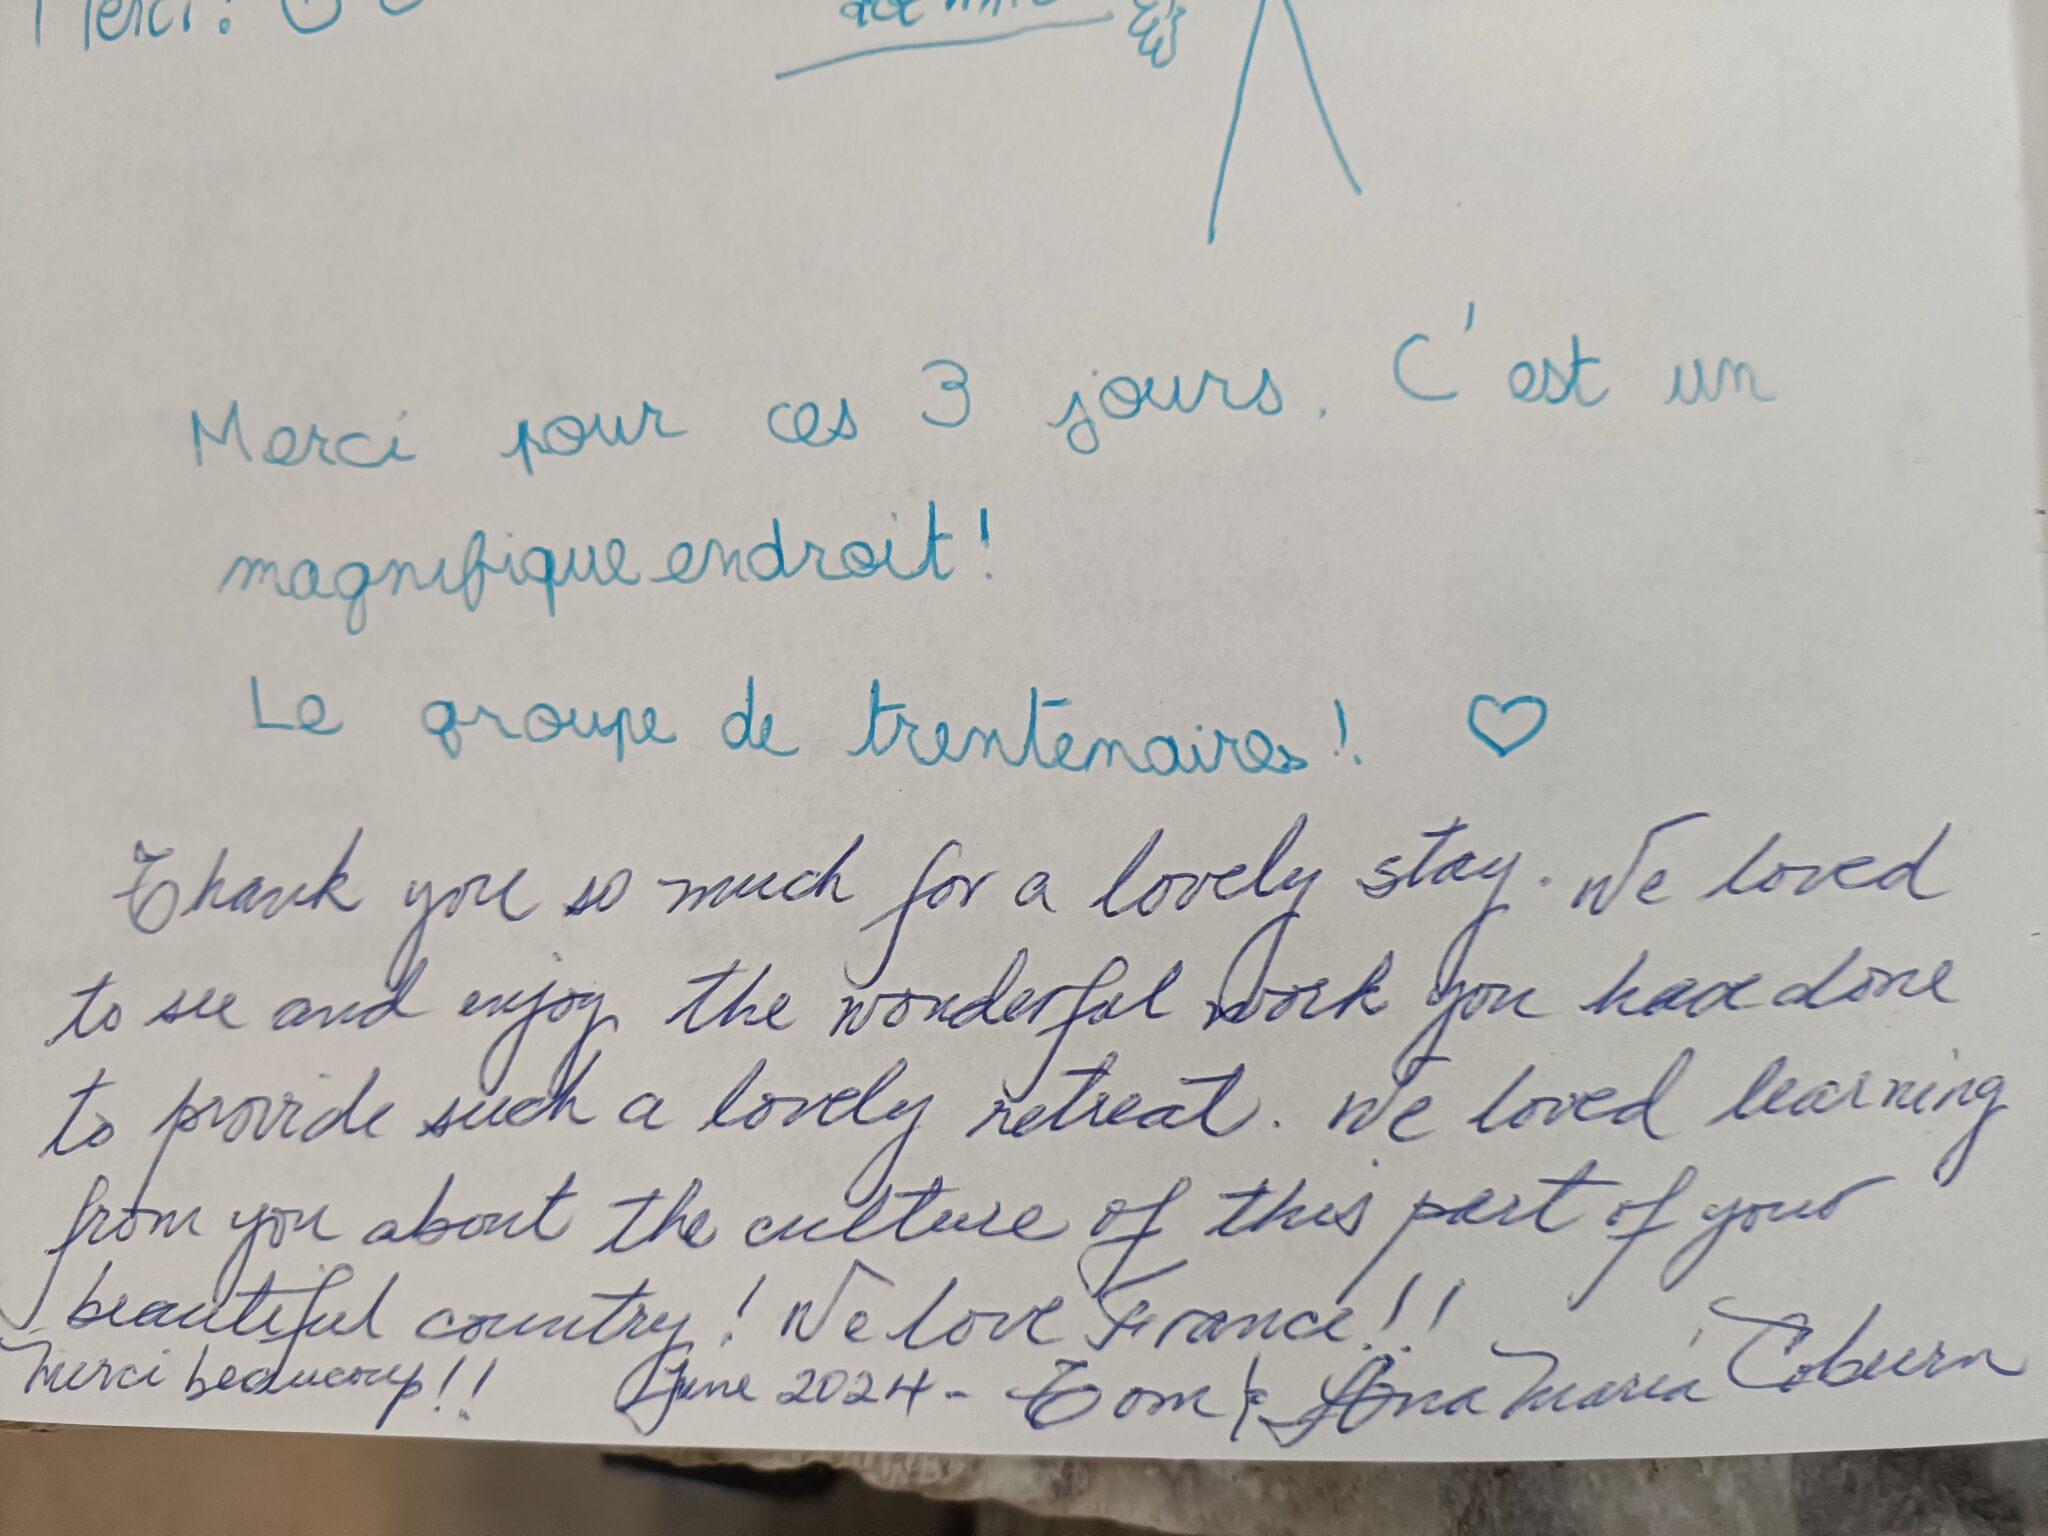 Merci!
Merci pour ces 3 jours. C'est un
magnifique endroit!
Le groupe de trentenaires! ♡
Thank you so much for a lovely stay. We loved
to see and enjoy the wonderful work you have done
to provide such a lovely retreat. We loved learning
from you about the culture of this part of your
beautiful country! We love France!!
Merci beaucoup!! June 2024 - Tom & Ana Maria Coburn